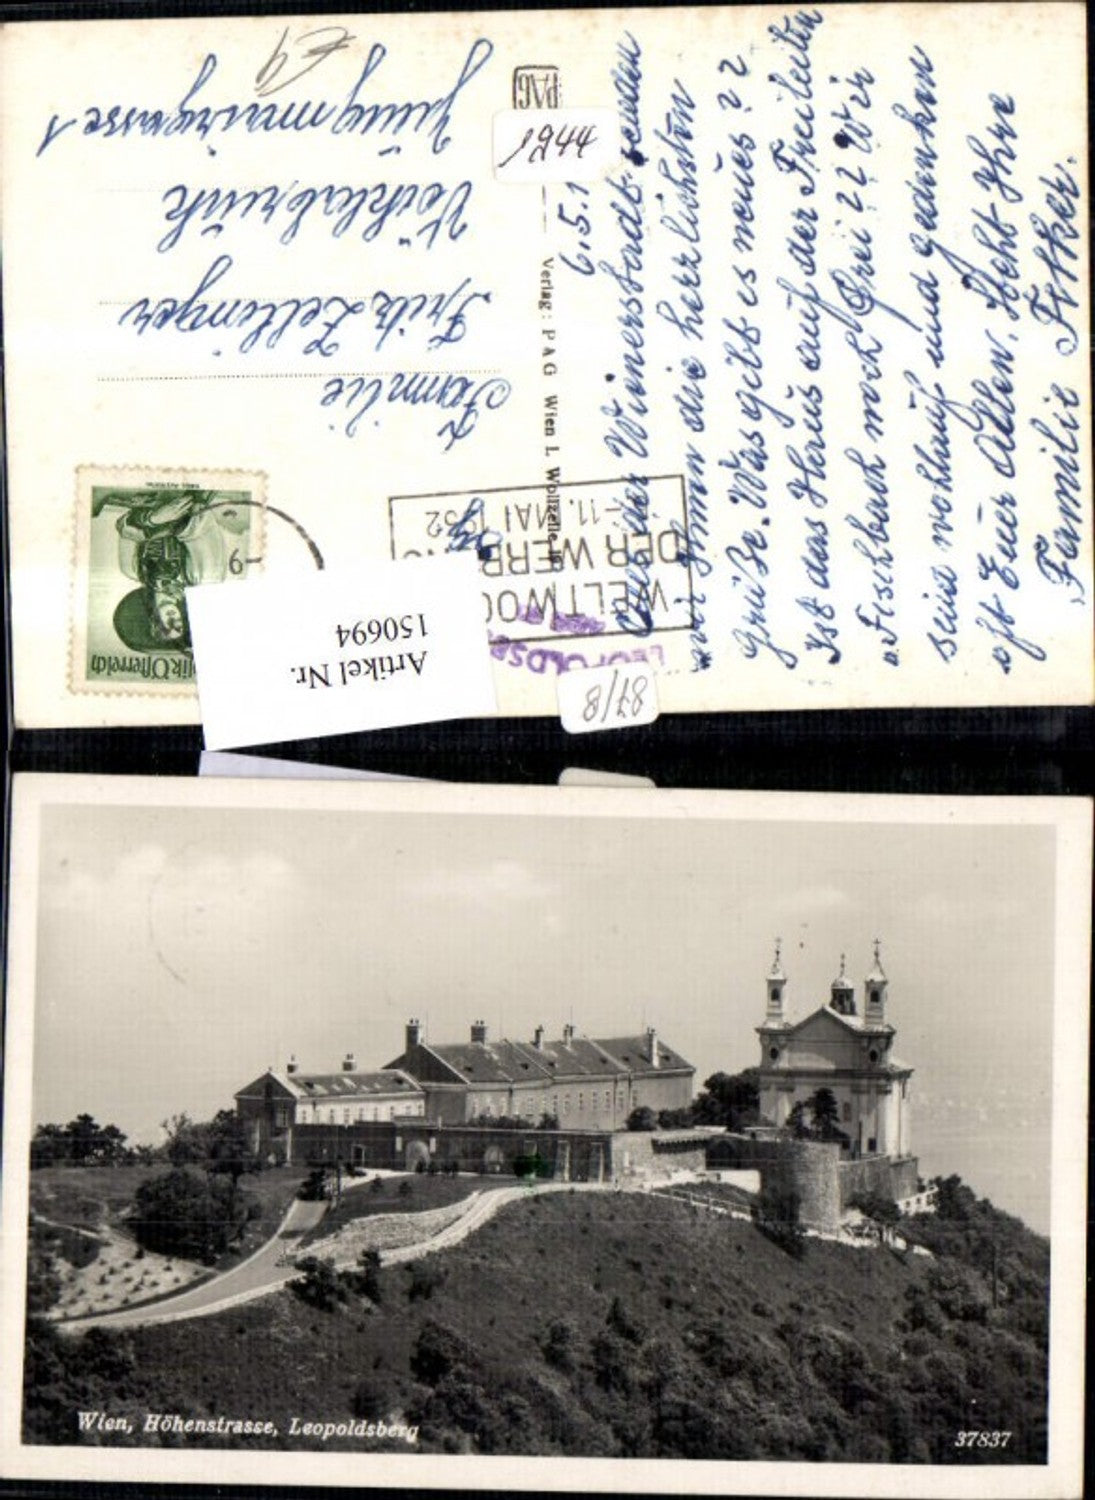 6.5.1
Aus der Wienerstadt senden
wir Ihnen die herzlichsten
Grüße. Was gibt es neues??
Ist das Haus auf der Freileiten
a. Fischbach noch frei?? Wir
seid wohlauf und gedenken
oft Euer Allen. Hochh Ihre
Familie
PAG
Verlag: PAG Wien I. Wollzeile
Familie
Fritz Zellinger
Vöcklabruck
Jungmairgasse 1
WELTWOC
DER WERB
–11. MAI 1952
LEOPOLDSB
Republik Österreich
1944
87/8
Artikel Nr.
150694
Wien, Höhenstrasse, Leopoldsberg
37837